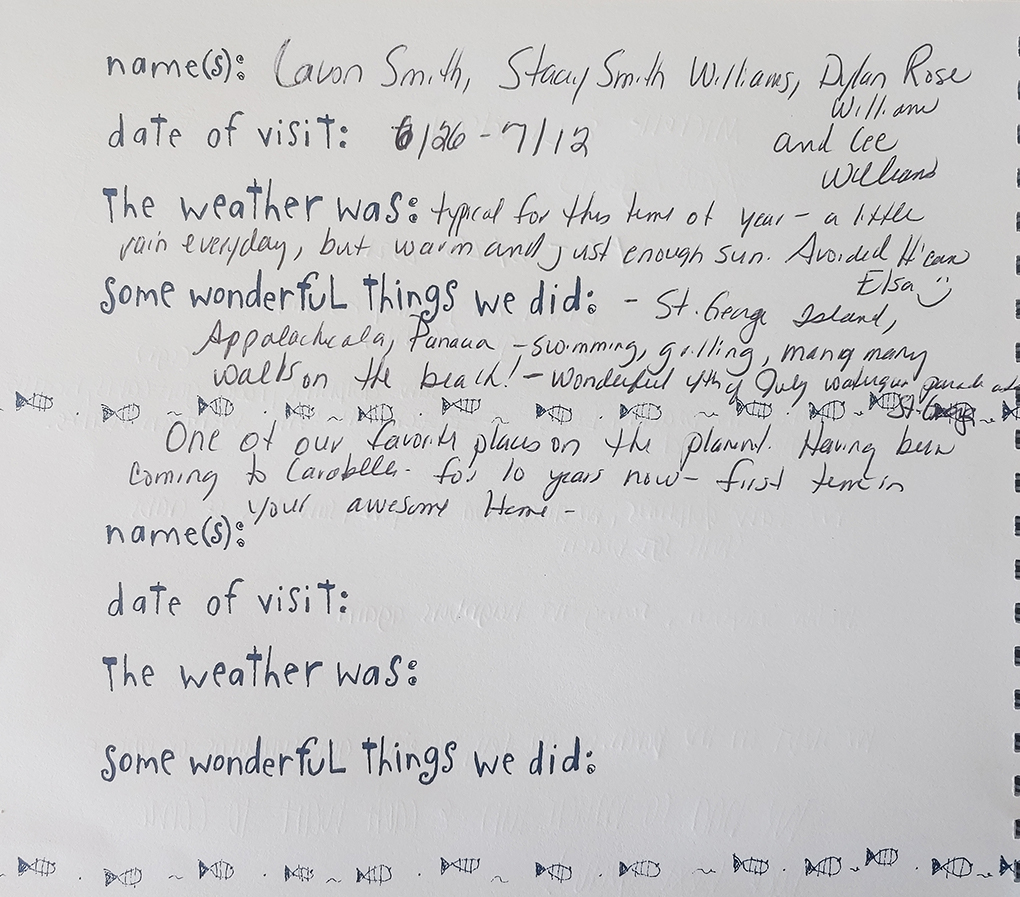 name(s): Lavon Smith, Stacey Smith Williams, Dylan Rose
Williams
date of visit: 6/26 - 7/12 and Lee
Williams
The weather was: typical for this time of year - a little
rain everyday, but warm and just enough sun. Avoided H'cane
Elsa
some wonderful things we did: - St. George Island,
Appalachicala, Panama - swimming, grilling, many many
walks on the beach! - Wonderful 4th of July parade
St. George
One of our favorite places on the planet. Having been
coming to Carabelle for 10 years now - first time in
your awesome Home -
name(s):
date of visit:
The weather was:
some wonderful things we did: